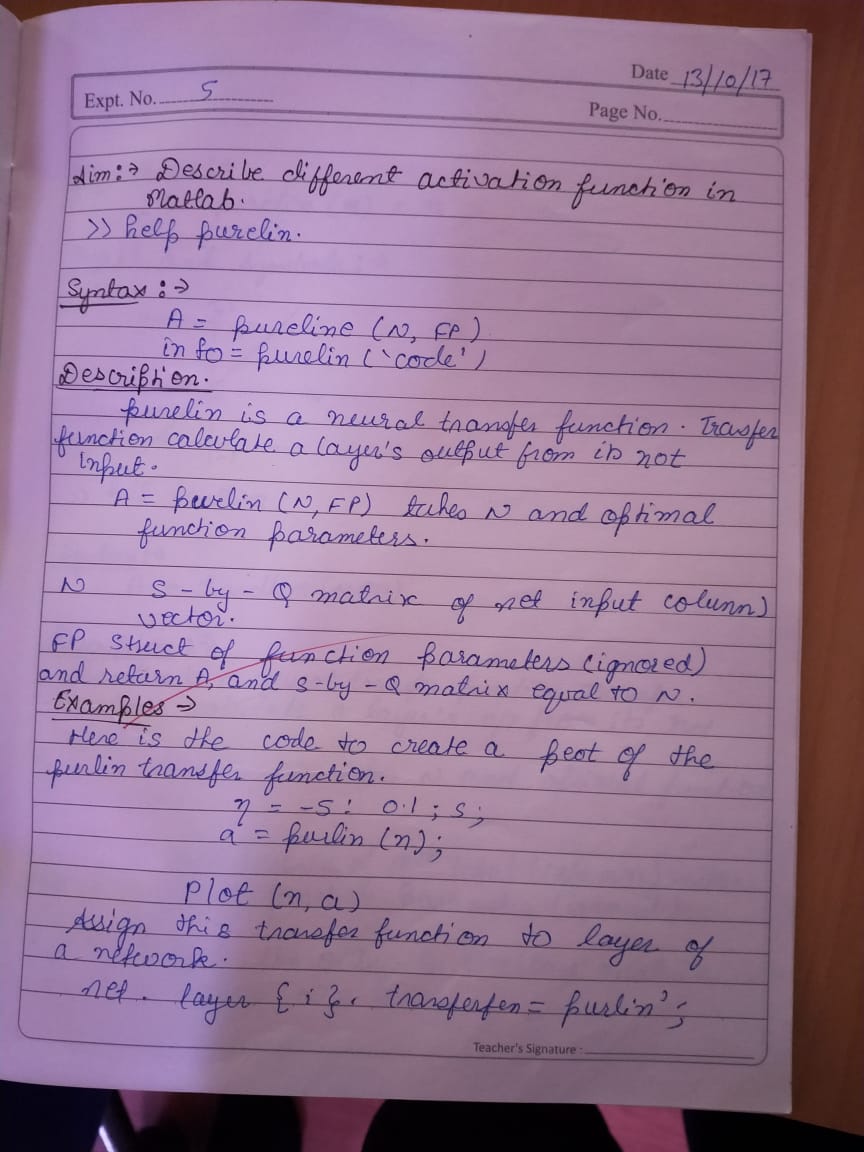 Date 13/10/17
Expt. No. 5
Page No.
Aim:→ Describe different activation function in
Matlab.
>> help purelin.
Syntax :→
A = pureline (N, FP)
info = purelin ('code')
Description.
purelin is a neural transfer function. Trasfer
function calculate a layer's output from its not
Input.
A = purelin (N, FP) takes N and optimal
function parameters.
N S-by-Q matrix of net input column)
vector.
FP Struct of function parameters (ignored)
and return A, and S-by-Q matrix equal to N.
Examples →
Here is the code to create a peot of the
purlin transfer function.
n = -5: 0.1; 5;
a = purlin (n);
Plot (n, a)
Assign this transfer function to layer of
a network.
net. layer {i}. transferfen = purlin';
Teacher's Signature :